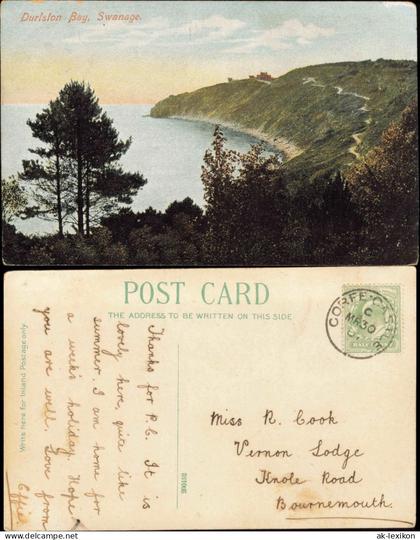 Durlston Bay, Swanage.
POST CARD
THE ADDRESS TO BE WRITTEN ON THIS SIDE
Write here for Inland Postage only
Thanks for P.C. It is
lovely here, quite like
summer. I am home for
a week's holiday. Hope
you are well. Love from
Effie
CORFE CASTLE
C
MR 30
HALF
Miss R. Cook
Vernon Lodge
Knole Road
Bournemouth.
© ak-ansichtskarten.de / DELCAMPE
ak-lexikon